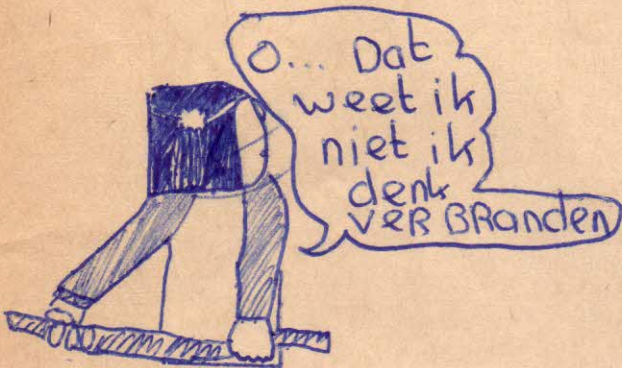 O... Dat
weet ik
niet ik
denk
VERBRanden